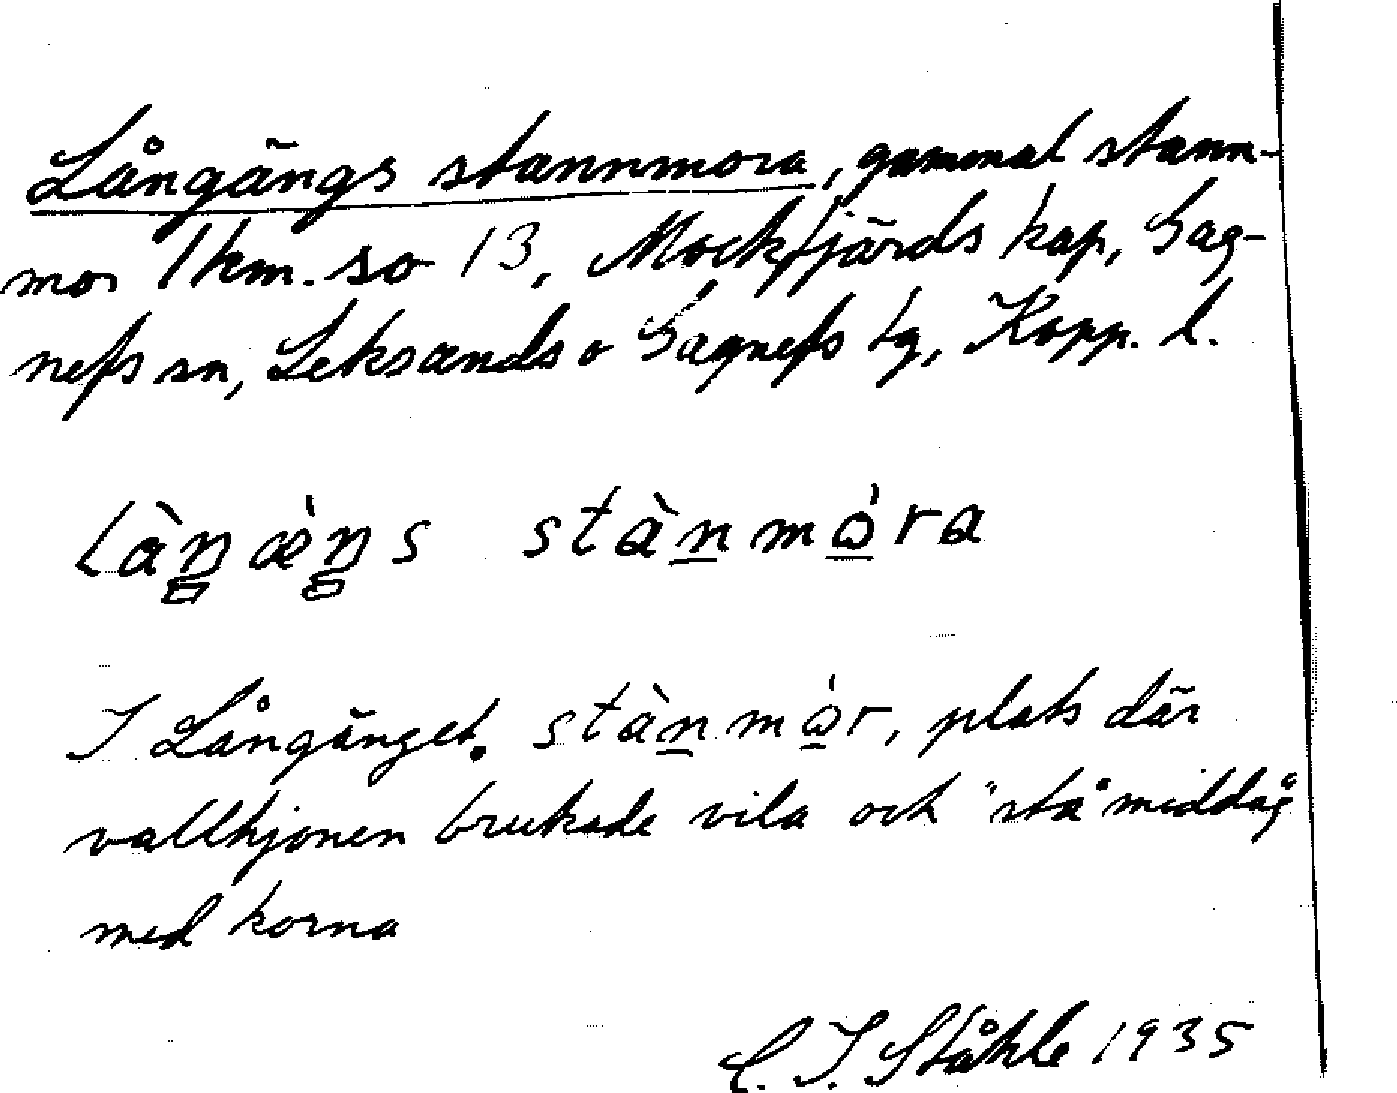 Långängs stannmora, gammal stann-
mor 1 km. so 13, Mockfjärds kap, Gag-
nefs sn, Leksands o Gagnefs tg, Kopp. l.
làŋæ̀ŋs stànmòra
I Långänget. stànmòr, plats där
vallhjonen brukade vila och "stå" middåg
med korna
C. I. Ståhle 1935